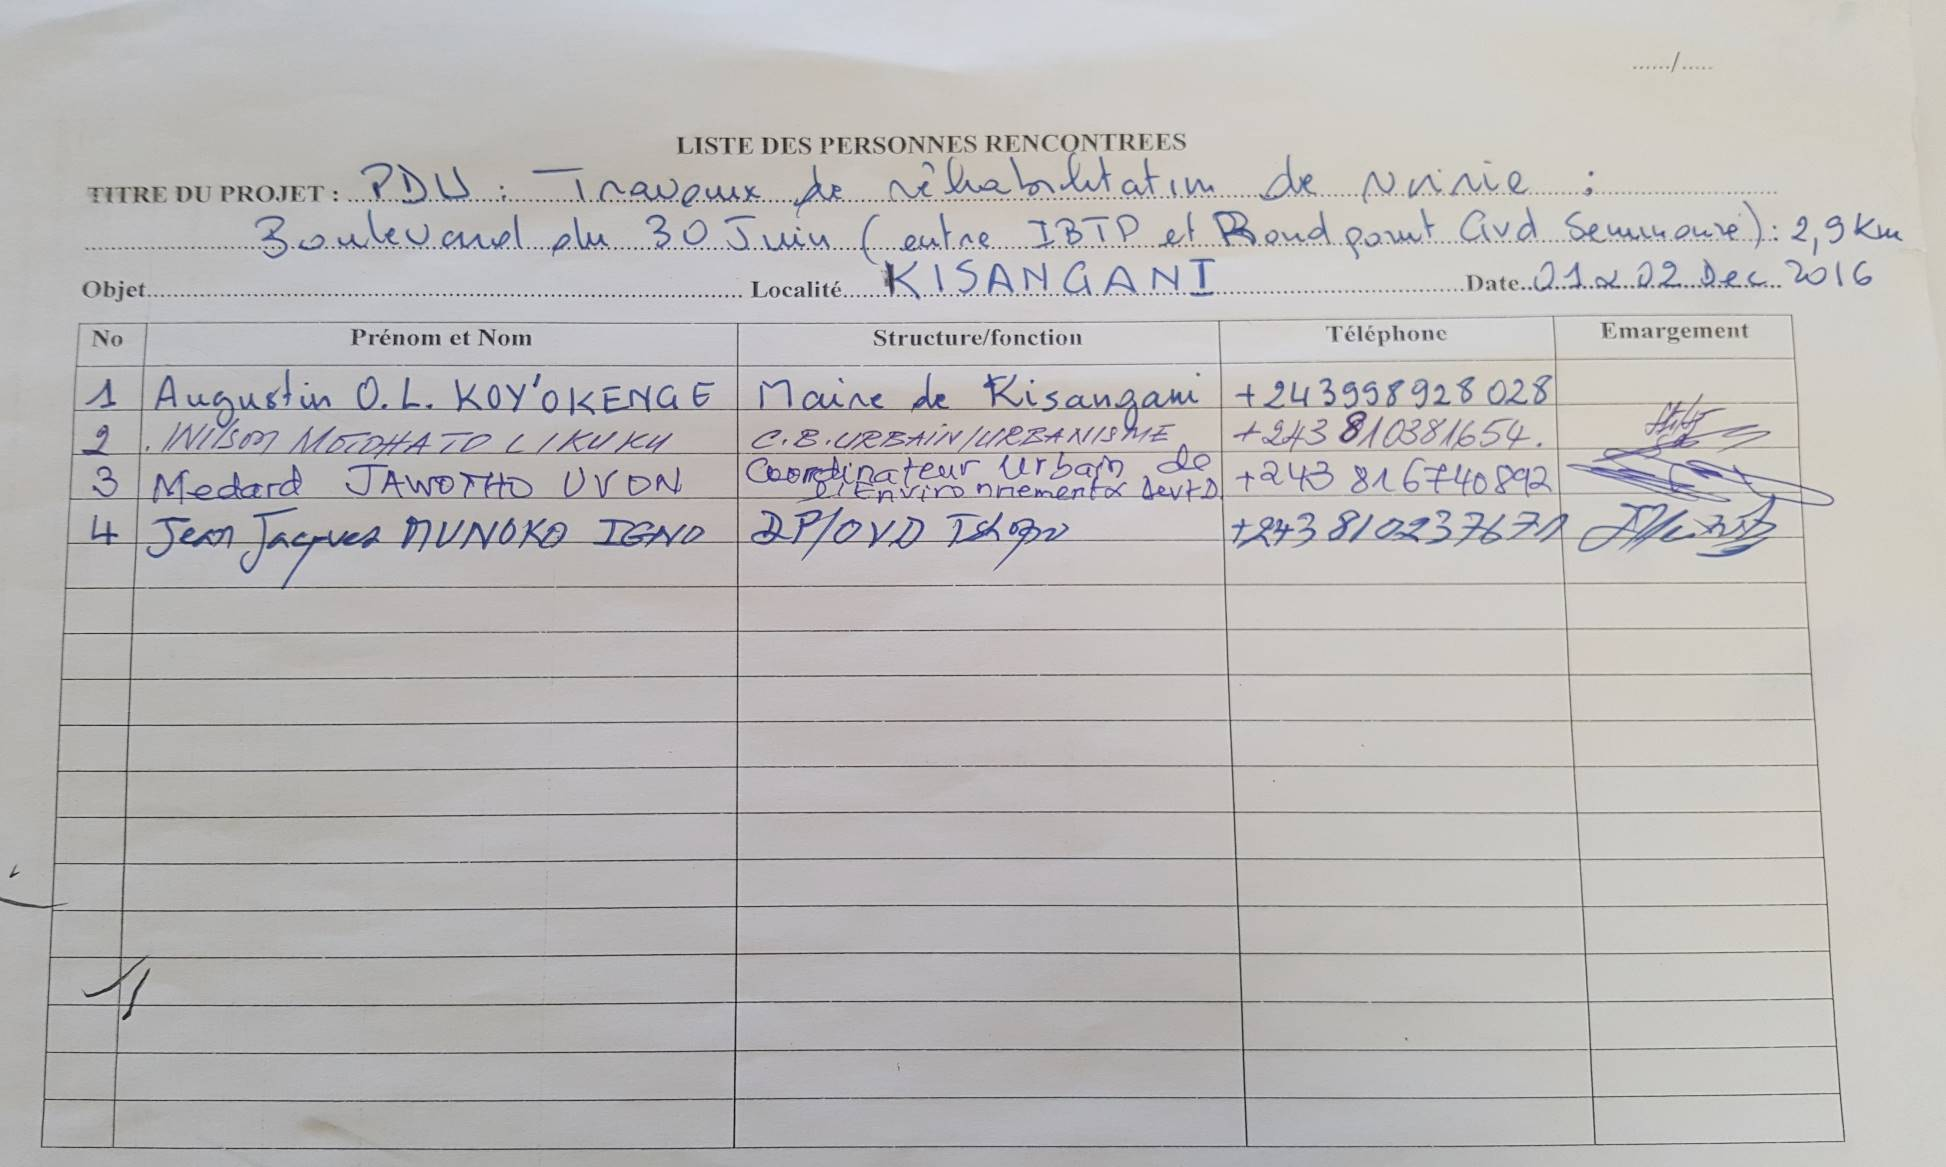 ....../.....
LISTE DES PERSONNES RENCONTREES
TITRE DU PROJET : PDU : Travaux de réhabilitation de voirie :
Boulevard du 30 Juin (entre IBTP et Rond point Gvd Séminaire) : 2,9 km
Objet Localité KISANGANI Date 01 & 02 Dec 2016
No Prénom et Nom Structure/fonction Téléphone Emargement
1 Augustin O.L. KOY'OKENGE Maire de Kisangani +243998928028
2 Wilson MOTOHATO LIKUKU C.B.URBAIN/URBANISME +243 810381654.
3 Medard JAWOTHO UVON Coordinateur Urbain de +243 816740892
l'Environnement & Devt D.
4 Jean Jacques MUNOKO IGNO DP/OVD Tshopo +243 810237671